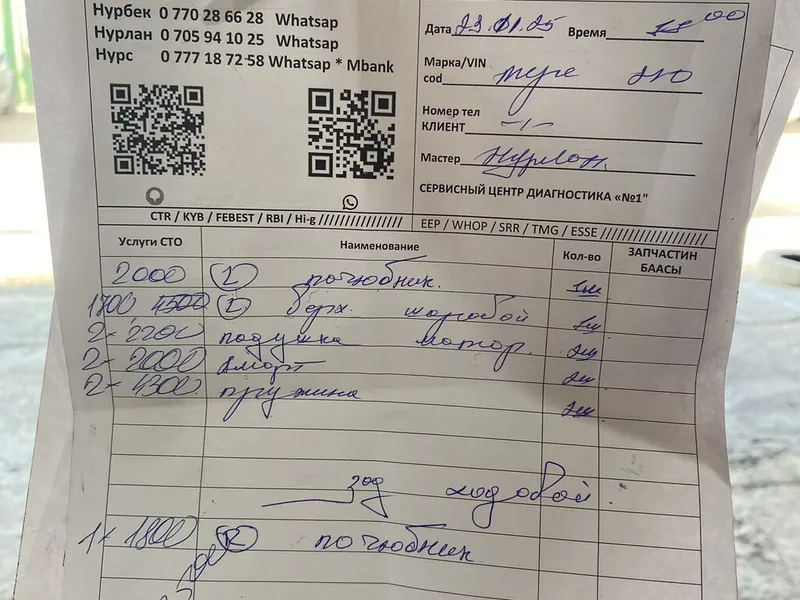 Нурбек 0 770 28 66 28 Whatsap
Нурлан 0 705 94 10 25 Whatsap
Нурс 0 777 18 72-58 Whatsap * Mbank
Дата 23.01.25 Время 18 00
Марка/VIN
cod 210
Номер тел
КЛИЕНТ -/-
Мастер Нурлан.
СЕРВИСНЫЙ ЦЕНТР ДИАГНОСТИКА «№1"
CTR / KYB / FEBEST / RBI / Hi-g //////////////// EEP / WHOP / SRR / TMG / ESSE ////////////////////
Услуги СТО Наименование Кол-во ЗАПЧАСТИН БААСЫ
2000 L почюбник. 1ш
1700 4500 L верх. шаровой 1ш
2- 2200 подушка матор. 2ш
2- 2000 аморт 2ш
2- 4300 пружина 2ш
зад ходовой
1x 1800 R почюбник